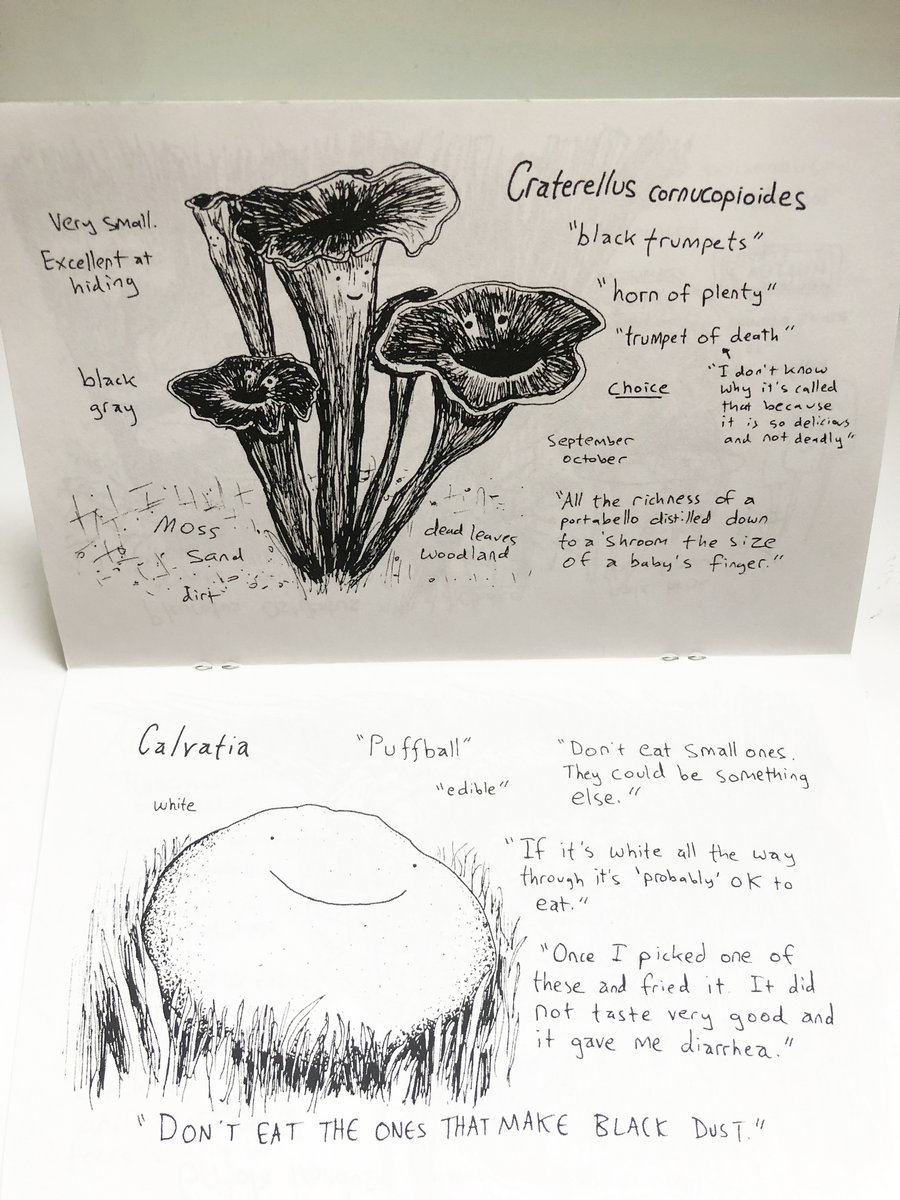 Craterellus cornucopioides
Very small.
Excellent at
hiding
black
gray
"black trumpets"
"horn of plenty"
"trumpet of death"
"I don't know
why it's called
that because
it is so delicious
and not deadly"
Choice
September
October
"All the richness of a
portabello distilled down
to a 'shroom the size
of a baby's finger."
Moss
Sand
dirt
dead leaves
woodland
Calvatia
"Puffball"
"edible"
white
"Don't eat small ones.
They could be something
else."
"If it's white all the way
through it's 'probably' OK to
eat."
"Once I picked one of
these and fried it. It did
not taste very good and
it gave me diarrhea."
"DON'T EAT THE ONES THAT MAKE BLACK DUST."